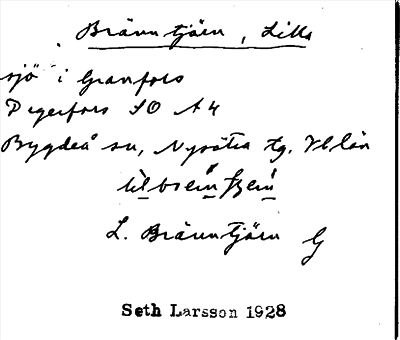 Bränntjärn, Lilla
sjö i Granfors
Degerfors SO A4
Bygdeå sn, Nysätra tg. Vb län
L. Bränntjärn G
Seth Larsson 1928